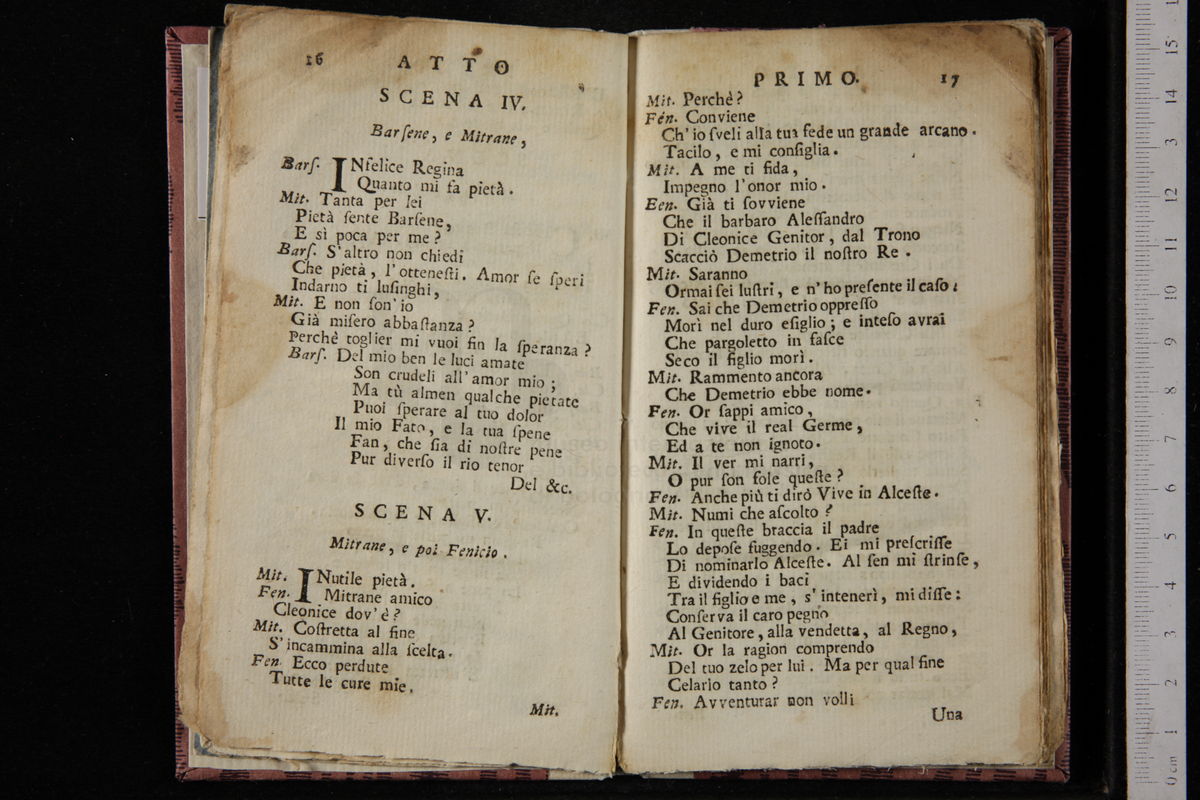 16
ATTO
SCENA IV.
Barſene, e Mitrane,
Barſ. INfelice Regina
Quanto mi fa pietà.
Mit. Tanta per lei
Pietà ſente Barſene,
E sì poca per me?
Barſ. S'altro non chiedi
Che pietà, l'otteneſti. Amor ſe ſperi
Indarno ti luſinghi,
Mit. E non ſon'io
Già miſero abbaſtanza?
Perchè toglier mi vuoi fin la ſperanza?
Barſ. Del mio ben le luci amate
Son crudeli all'amor mio;
Ma tù almen qualche pietate
Puoi ſperare al tuo dolor
Il mio Fato, e la tua ſpene
Fan, che ſia di noſtre pene
Pur diverſo il rio tenor
Del &c.
SCENA V.
Mitrane, e poi Fenicio.
Mit. INutile pietà.
Fen. Mitrane amico
Cleonice dov'è?
Mit. Coſtretta al fine
S'incammina alla ſcelta.
Fen. Ecco perdute
Tutte le cure mie.
Mit.
PRIMO.
17
Mit. Perchè?
Fen. Conviene
Ch'io ſveli alla tua fede un grande arcano.
Tacilo, e mi conſiglia.
Mit. A me ti fida,
Impegno l'onor mio.
Een. Già ti ſovviene
Che il barbaro Aleſſandro
Di Cleonice Genitor, dal Trono
Scacciò Demetrio il noſtro Re.
Mit. Saranno
Ormai ſei luſtri, e n'ho preſente il caſo:
Fen. Sai che Demetrio oppreſſo
Morì nel duro eſiglio; e inteſo avrai
Che pargoletto in faſce
Seco il figlio morì.
Mit. Rammento ancora
Che Demetrio ebbe nome.
Fen. Or ſappi amico,
Che vive il real Germe,
Ed a te non ignoto.
Mit. Il ver mi narri,
O pur ſon fole queſte?
Fen. Anche più ti dirò Vive in Alceſte.
Mit. Numi che aſcolto?
Fen. In queſte braccia il padre
Lo depoſe fuggendo. Ei mi preſcriſſe
Di nominarlo Alceſte. Al ſen mi ſtrinſe,
E dividendo i baci
Tra il figlio e me, s'intenerì, mi diſſe:
Conſerva il caro pegno
Al Genitore, alla vendetta, al Regno,
Mit. Or la ragion comprendo
Del tuo zelo per lui. Ma per qual fine
Celarlo tanto?
Fen. Avventurar non volli
Una
15
14
13
12
11
10
9
8
7
6
5
4
3
2
1
0 cm